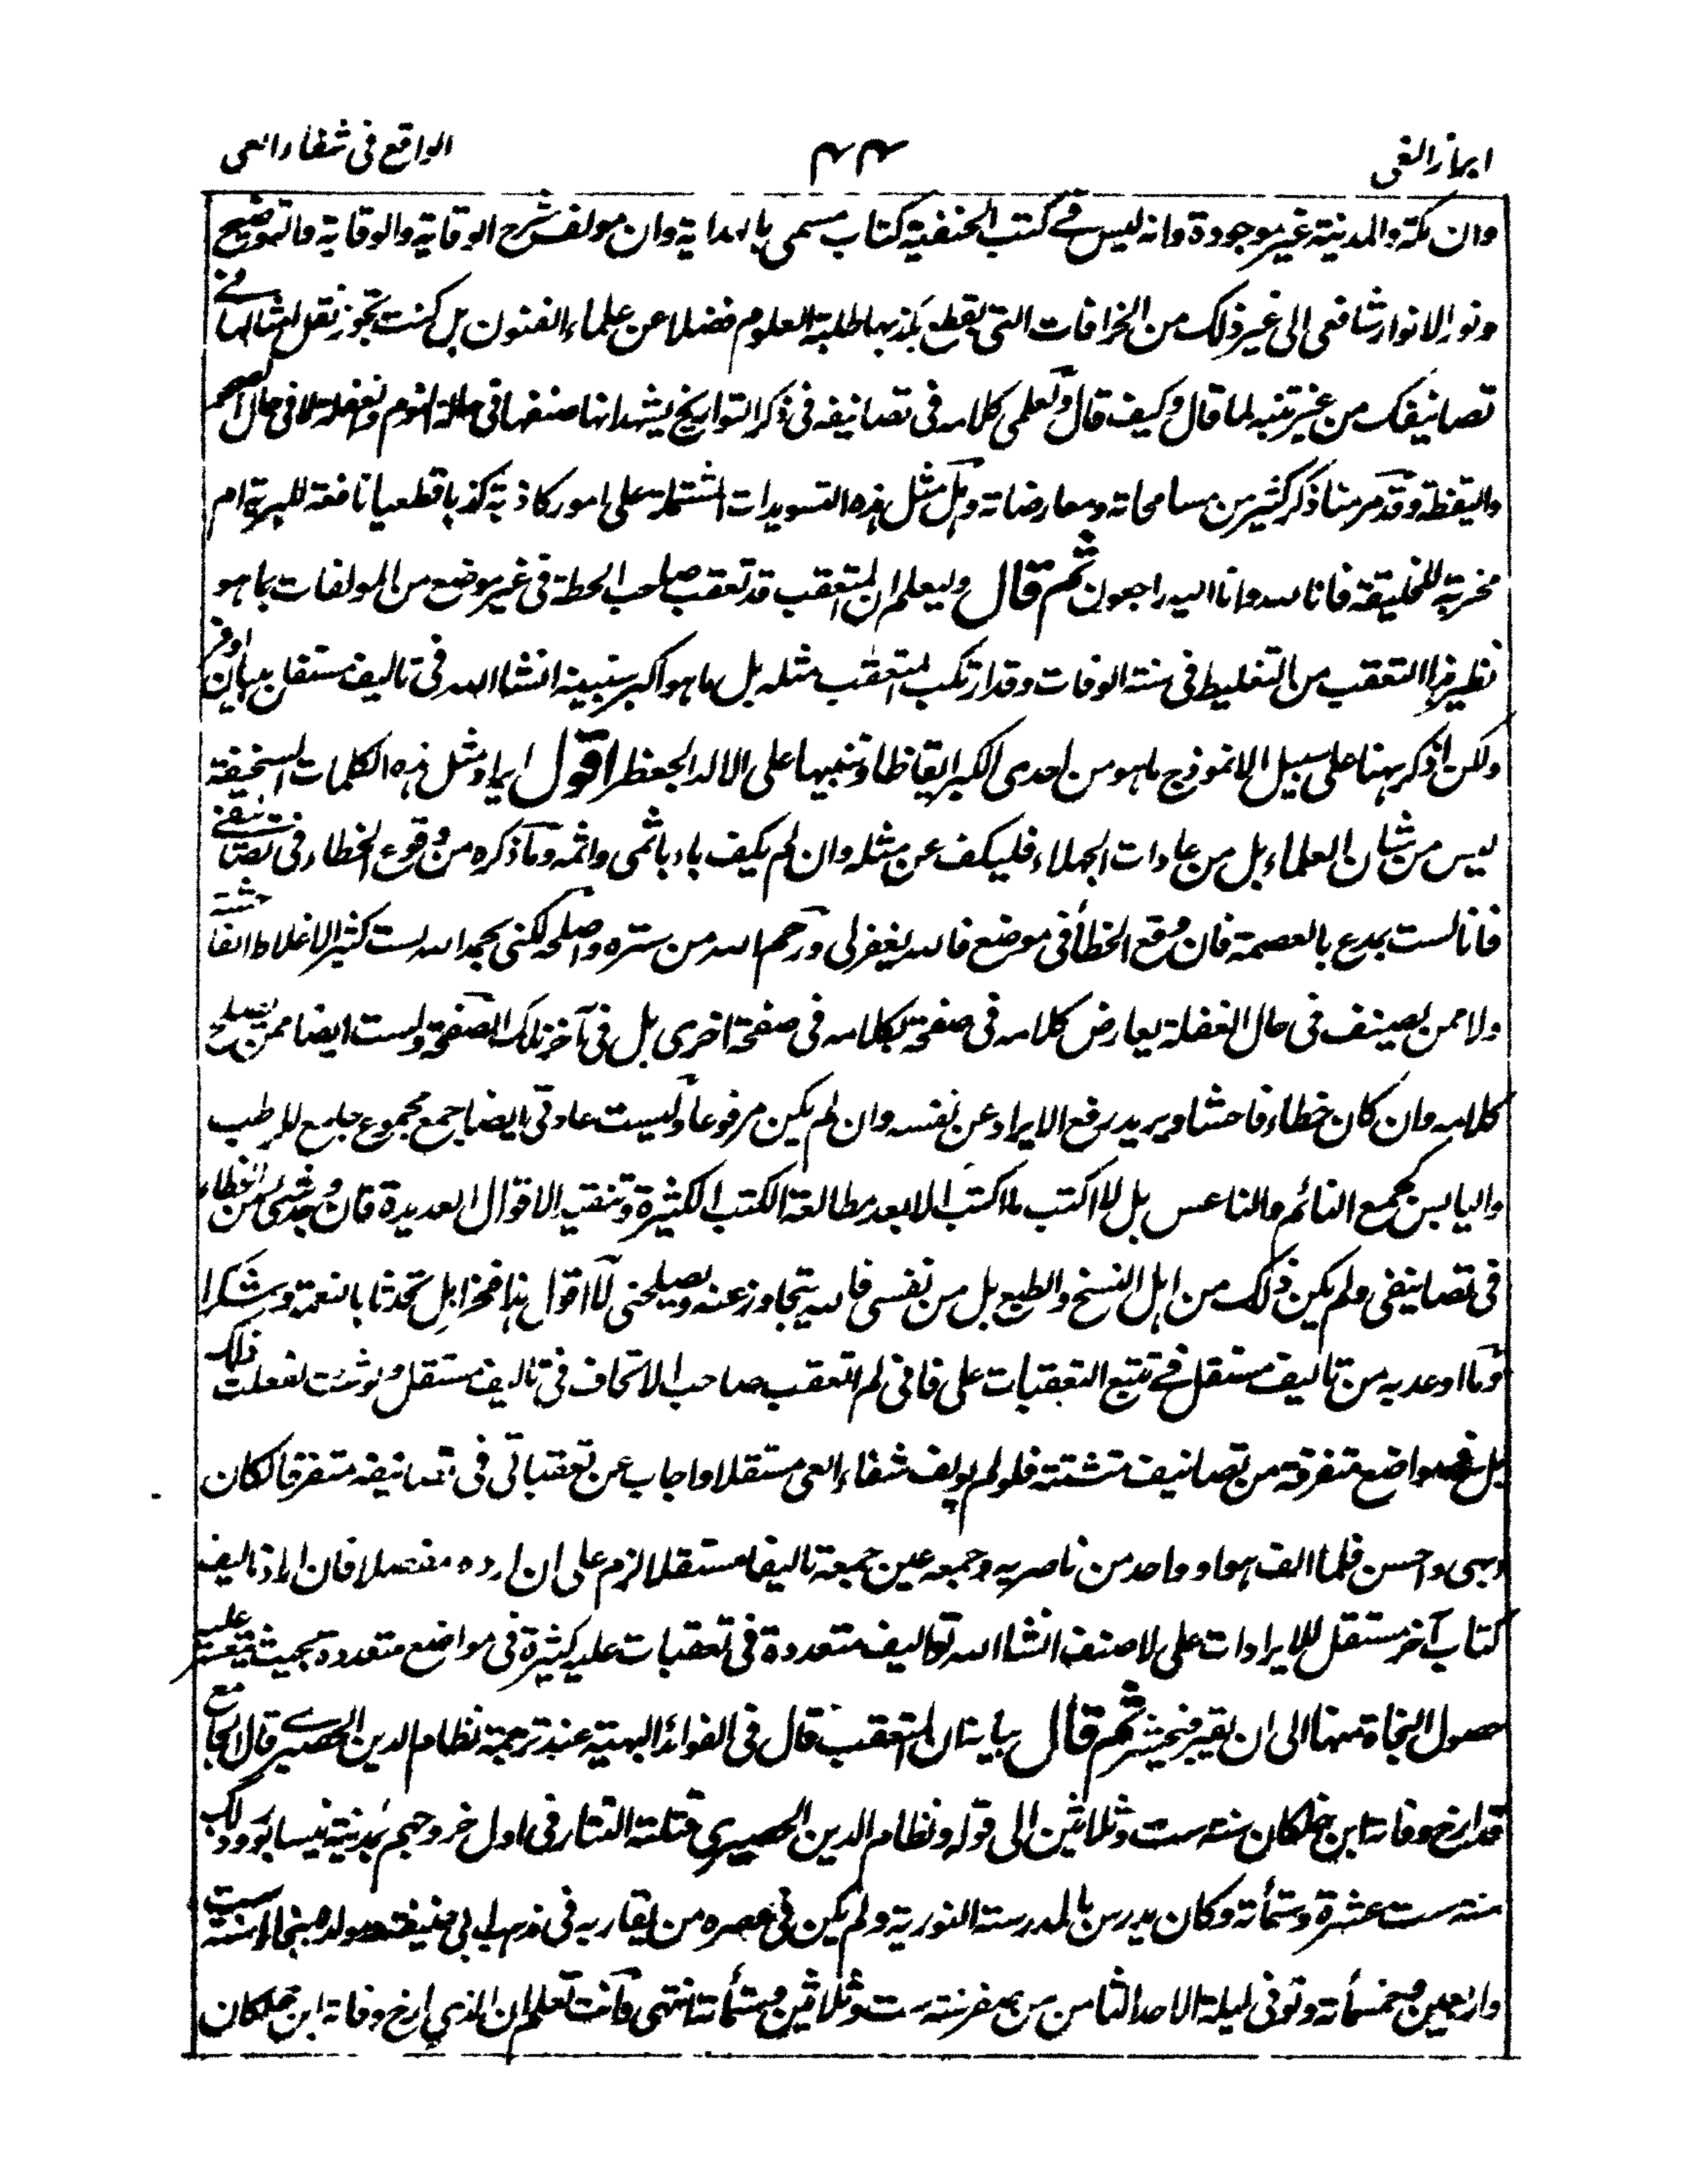 ابراز الغی ۴۴ الواقع فی شفاء العی
وان مكة والمدينة غير موجودة وانه ليس فے كتب الحنفية كتاب مسمی بالهداية وان مولف شرح الوقاية والوقاية والتوضيح
ونور الانوار شافعی الی غير ذلك من الخرافات التی يقطع بكذبها طلبة العلوم فضلا عن علماء الفنون بل كنت تجوز نقل امثالها فے
تصانيفك من غير تنبه لما قال وكيف قال ولعلمی كلامه فی تصانيفه فی ذكر التواريخ يشهد انها صنفها فی حالة النوم والغفلة لا فی حال الصحو
واليقظة وقد مر منا ذكر كثير من مسامحاته ومعارضاته وهل مثل هذه التسويدات المشتملة علی امور كاذبة كذبا قطعيا نافعة للبرية ام
مخربة للخليقة فانا لله وانا اليه راجعون ثم قال وليعلم ان المتعقب قد تعقب صاحب الحطة فی غير موضع من المولفات بما هو
نظير هذا التعقب من التغليط فی سنة الوفات وقد ارتكب المتعقب مثله بل ما هو اكبر سنبينه انشاء الله فی تاليف مستقل بيان اوفر
ولكن اذكر ههنا علی سبيل الانموذج ما هو من احدی الكبر ايقاظا وتنبيها علی الالد الجعظر اقول ايراد مثل هذه الكلمات السخيفة
ليس من شان العلماء بل من عادات الجهلاء فليكف عن مثله وان لم يكف باء باثمی واثمه وما ذكره من وقوع الخطاء فی تصانيفے
فانا لست بمدع بالعصمة فان وقع الخطأ فی موضع فالله يغفر لی ورحم الله من ستره واصلحه لكنی بحمد الله لست كثير الاغلاط الفاحشة
ولا ممن يصنف فی حال الغفلة يعارض كلامه فی صفحة بكلامه فی صفحة اخری بل فی آخر تلك الصفحة ولست ايضا ممن يصلح
كلامه وان كان خطاء فاحشا ويريد رفع الايراد عن نفسه وان لم يكن مرفوعا وليست عادتی ايضا جمع مجموع جامع للرطب
واليابس كجمع النائم والناعس بل لا اكتب ما اكتب الا بعد مطالعة الكتب الكثيرة وتنقيد الاقوال العديدة فان وجد شئ من الخطاء
فی تصانيفی ولم يكن ذلك من اهل النسخ والطبع بل من نفسی فالله يتجاوز عنه ويصلحنی لا اقول هذا فخرا بل تحدثا بالنعمة وشكرا
وما اوعد به من تاليف مستقل فے تتبع التعقبات علی فانی لم اتعقب صاحب الاتحاف فی تاليف مستقل ولو شئت لفعلت ذلك
بل فی مواضع متفرقة من تصانيف متشتتة فلو لم يولف شفاء العی مستقلا واجاب عن تعقباتی فی تصانيفه متفرقا لكان
اهبی واحسن فلما الف هو او واحد من ناصريه وجمعه عين جمعه تاليفا مستقلا لزم علی ان ارده مفصلا فان اراد تاليف
كتاب آخر مستقل للايرادات علی لاصنف انشاء الله تواليف متعددة فی تعقبات عليه كثيرة فی مواضع متعددة بحيث يتعسر عليه
حصول النجاة منها الی ان يقبر فيحشر ثم قال بيانه ان المتعقب قال فی الفوائد البهية عند ترجمة نظام الدين الحصيرے قال الجامع
قد ارخ وفاته ابن خلكان سنة ست وثلاثين الی قوله ونظام الدين الحصيری قتلته التتار فی اول خروجهم بمدينة نيسابور وذلك
سنة ست عشرة وستمأة وكان يدرس بالمدرسة النورية ولم يكن فی عصره من يقاربه فی مذهب ابی حنيفة ومولده ببخارا سنة ست
واربعين وخمسمأة وتوفی ليلة الاحد الثامن من صفر سنة ست وثلاثين وستمأة انتهی وانت تعلم ان الذی ارخ وفاته ابن خلكان